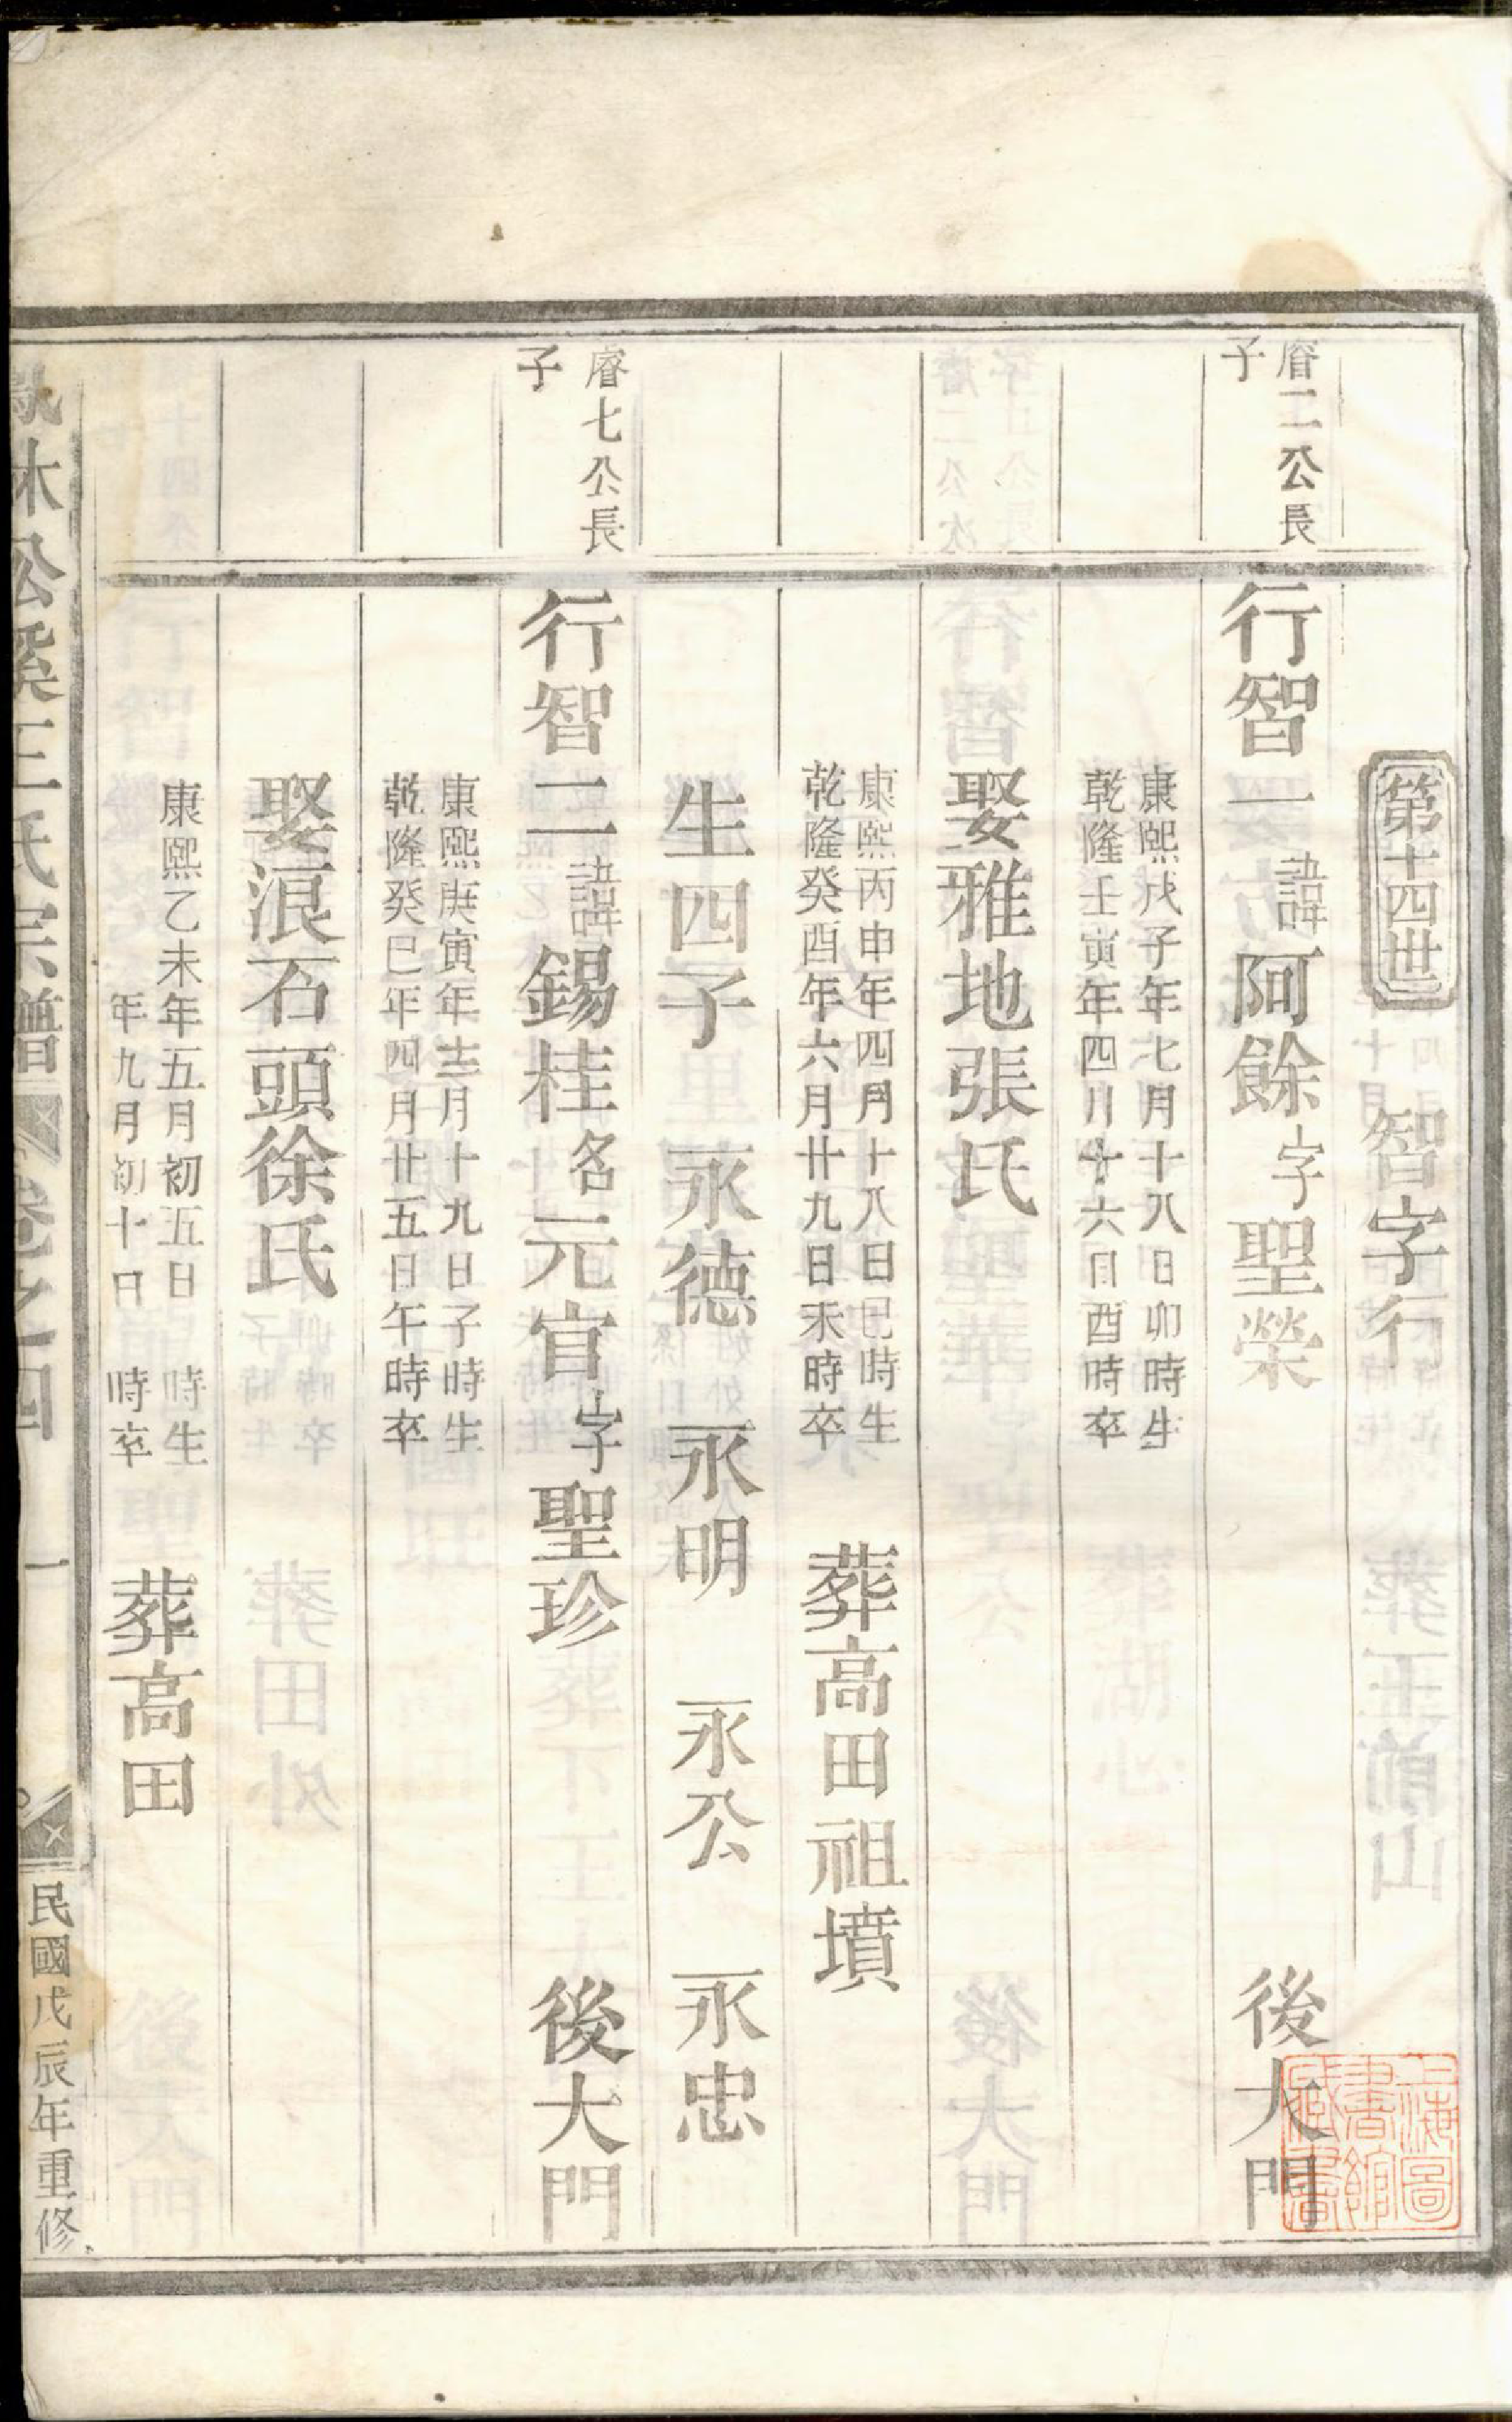 第十四世 智字行
睿二公長
子
行智一諱阿餘字聖榮 後大門
康熙戊子年七月十八日卯時生
乾隆壬寅年四月十六日酉時卒
娶雅地張氏
康熙丙申年四月十八日巳時生
乾隆癸酉年六月廿九日未時卒
葬高田祖墳
生四子 永德 永明 永公 永忠
睿七公長
子
行智二諱錫桂名元官字聖珍 後大門
康熙庚寅年十二月十九日子時生
乾隆癸巳年四月廿五日午時卒
娶浪石頭徐氏
康熙乙未年五月初五日 時生
年九月初十日 時卒
葬高田
鳳林公溪王氏宗譜 卷之四 一 民國戊辰年重修
上海圖
書館
藏書